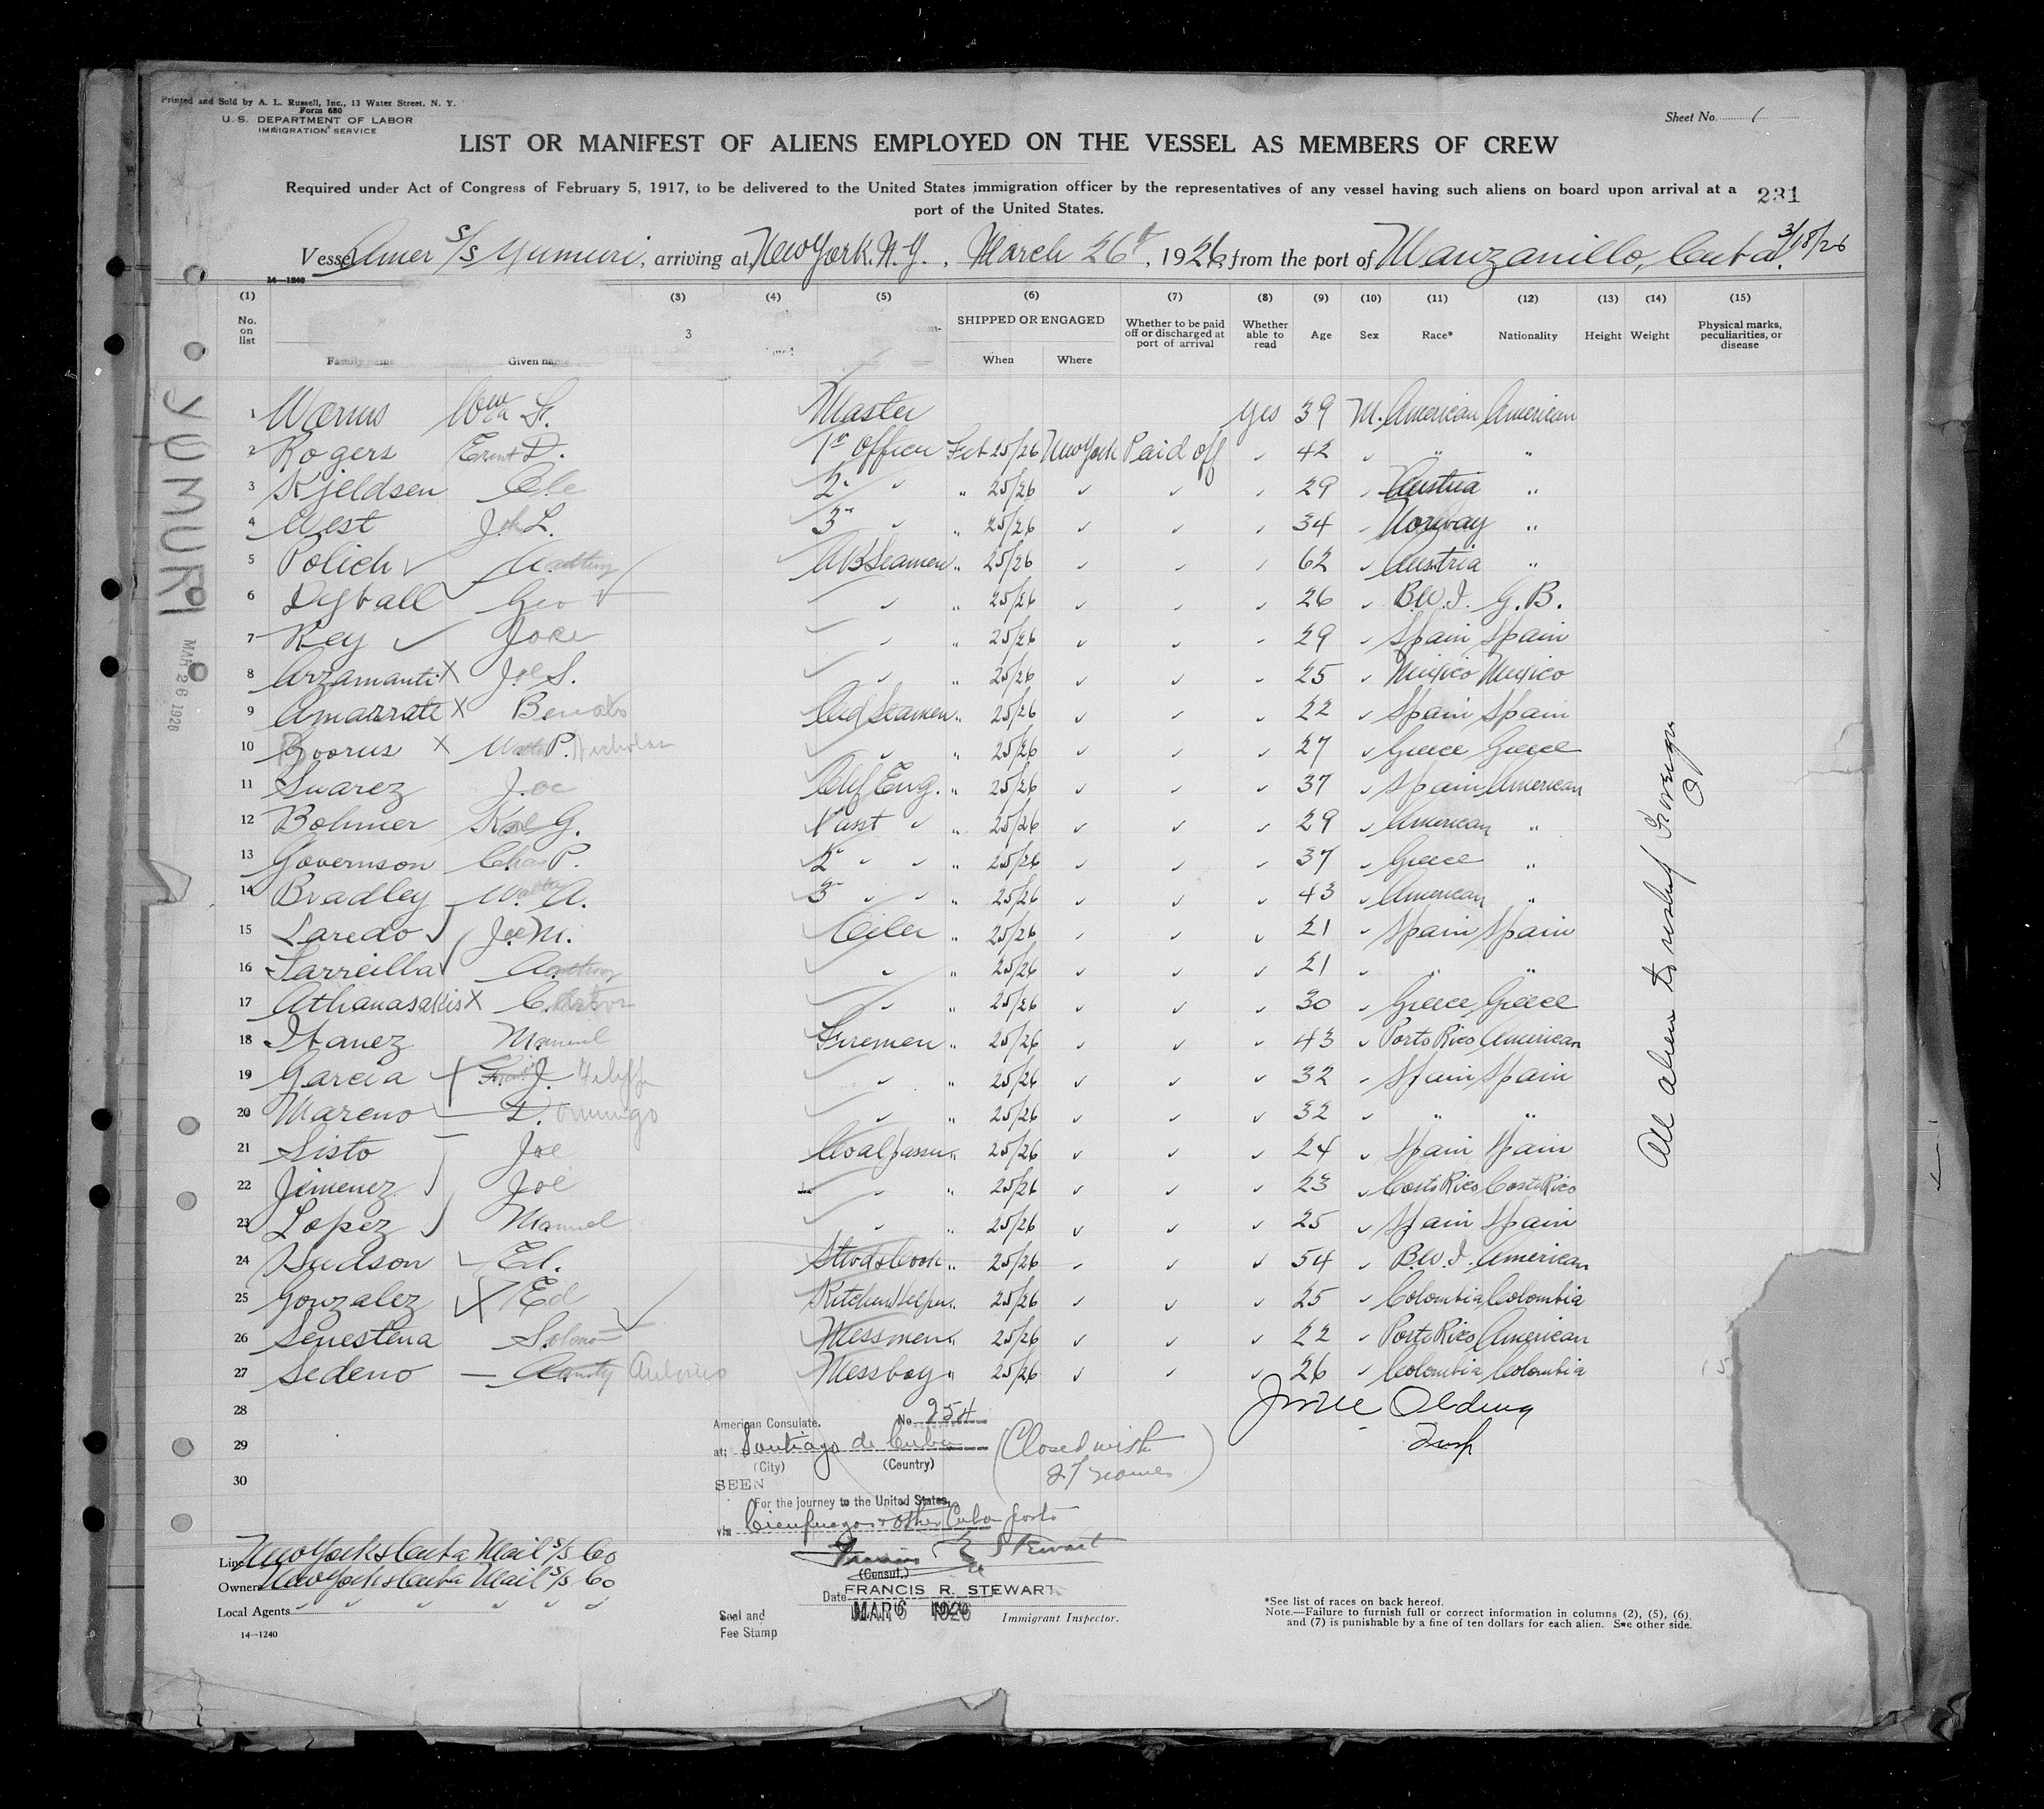 Printed and Sold by A. L. Russell, Inc., 13 Water Street, N. Y.
Form 680
U. S. DEPARTMENT OF LABOR
IMMIGRATION SERVICE
Sheet No. 1
LIST OR MANIFEST OF ALIENS EMPLOYED ON THE VESSEL AS MEMBERS OF CREW
Required under Act of Congress of February 5, 1917, to be delivered to the United States immigration officer by the representatives of any vessel having such aliens on board upon arrival at a
port of the United States.
231
Vessel Amer S/S Yumuri, arriving at New York. N.Y., March 26th, 1926, from the port of Manzanillo, Cuba. 3/18/26
14—1240
(1) (3) (4) (5) (6) (7) (8) (9) (10) (11) (12) (13) (14) (15)
No. on list Family name Given name 3 SHIPPED OR ENGAGED When Where Whether to be paid off or discharged at port of arrival Whether able to read Age Sex Race* Nationality Height Weight Physical marks, peculiarities, or disease
1 Worms Wm Master yes 39 M. American American
2 Rogers D. 1st Officer Feb 25/26 New York Paid off ✓ 42 ✓ " "
3 Kjeldsen Ole 2 " " 25/26 ✓ ✓ ✓ 29 ✓ Austria "
4 West Joh L. 3 " " 25/26 ✓ ✓ ✓ 34 ✓ Norway "
5 Polich ABSeamen " 25/26 ✓ ✓ ✓ 62 ✓ Austria "
6 Dyball Geo ✓ " 25/26 ✓ ✓ ✓ 26 ✓ B.W.I. G.B.
7 Rey Jose ✓ " 25/26 ✓ ✓ ✓ 29 ✓ Spain Spain
8 Arzamanti X Joe S. ✓ " 25/26 ✓ ✓ ✓ 25 ✓ Mexico Mexico
9 Amarrate X Benato Ord Seamen " 25/26 ✓ ✓ ✓ 22 ✓ Spain Spain
10 X P. Nicholas ✓ " 25/26 ✓ ✓ ✓ 27 ✓ Greece Greece
11 Suarez Joe Chf Eng. " 25/26 ✓ ✓ ✓ 37 ✓ Spain American
12 Bohmer Karl G. 1 asst ✓ " 25/26 ✓ ✓ ✓ 29 ✓ American "
13 Governson Chas P. 2 " " " 25/26 ✓ ✓ ✓ 37 ✓ Greece "
14 Bradley Walter A. 3 " " " 25/26 ✓ ✓ ✓ 43 ✓ American "
15 Laredo Joe M. Oiler " 25/26 ✓ ✓ ✓ 21 ✓ Spain Spain
16 Larreilla ✓ " 25/26 ✓ ✓ ✓ 21 ✓ " "
17 Athanasakis X ✓ " 25/26 ✓ ✓ ✓ 30 ✓ Greece Greece
18 Ibanez Manuel Firemen " 25/26 ✓ ✓ ✓ 43 ✓ Porto Rico American
19 Garcia J. ✓ " 25/26 ✓ ✓ ✓ 32 ✓ Spain Spain
20 Mareno Domingo ✓ " 25/26 ✓ ✓ ✓ 32 ✓ " "
21 Sisto Joe Coal passer " 25/26 ✓ ✓ ✓ 24 ✓ Spain Spain
22 Jimenez Joe ✓ " 25/26 ✓ ✓ ✓ 23 ✓ Costa Rico Costa Rico
23 Lopez Manuel ✓ " 25/26 ✓ ✓ ✓ 25 ✓ Spain Spain
24 Hudson Ed. Stwd & Cook " 25/26 ✓ ✓ ✓ 54 ✓ B.W.I. American
25 Gonzalez X Ed Kitchen Helper " 25/26 ✓ ✓ ✓ 25 ✓ Colombia Colombia
26 Senestena Solomon Messmen " 25/26 ✓ ✓ ✓ 22 ✓ Porto Rico American
27 Sedeno Antonio Messboy " 25/26 ✓ ✓ ✓ 26 ✓ Colombia Colombia
28
29
30
All aliens to reship Foreign
YUMURI
MAR 26 1926
American Consulate. No. 254
at; Santiago de Cuba
(City) (Country)
(Closed with 27 names)
SEEN
For the journey to the United States,
via Cienfuegos & other Cuban ports
Francis R Stewart
(Consul.)
FRANCIS R. STEWART
Date MAR 6 1926
Seal and
Fee Stamp
Immigrant Inspector.
Line New York & Cuba Mail S/S Co
Owner New York & Cuba Mail S/S Co
Local Agents " " " " " "
14—1240
*See list of races on back hereof.
Note.—Failure to furnish full or correct information in columns (2), (5), (6),
and (7) is punishable by a fine of ten dollars for each alien. See other side.